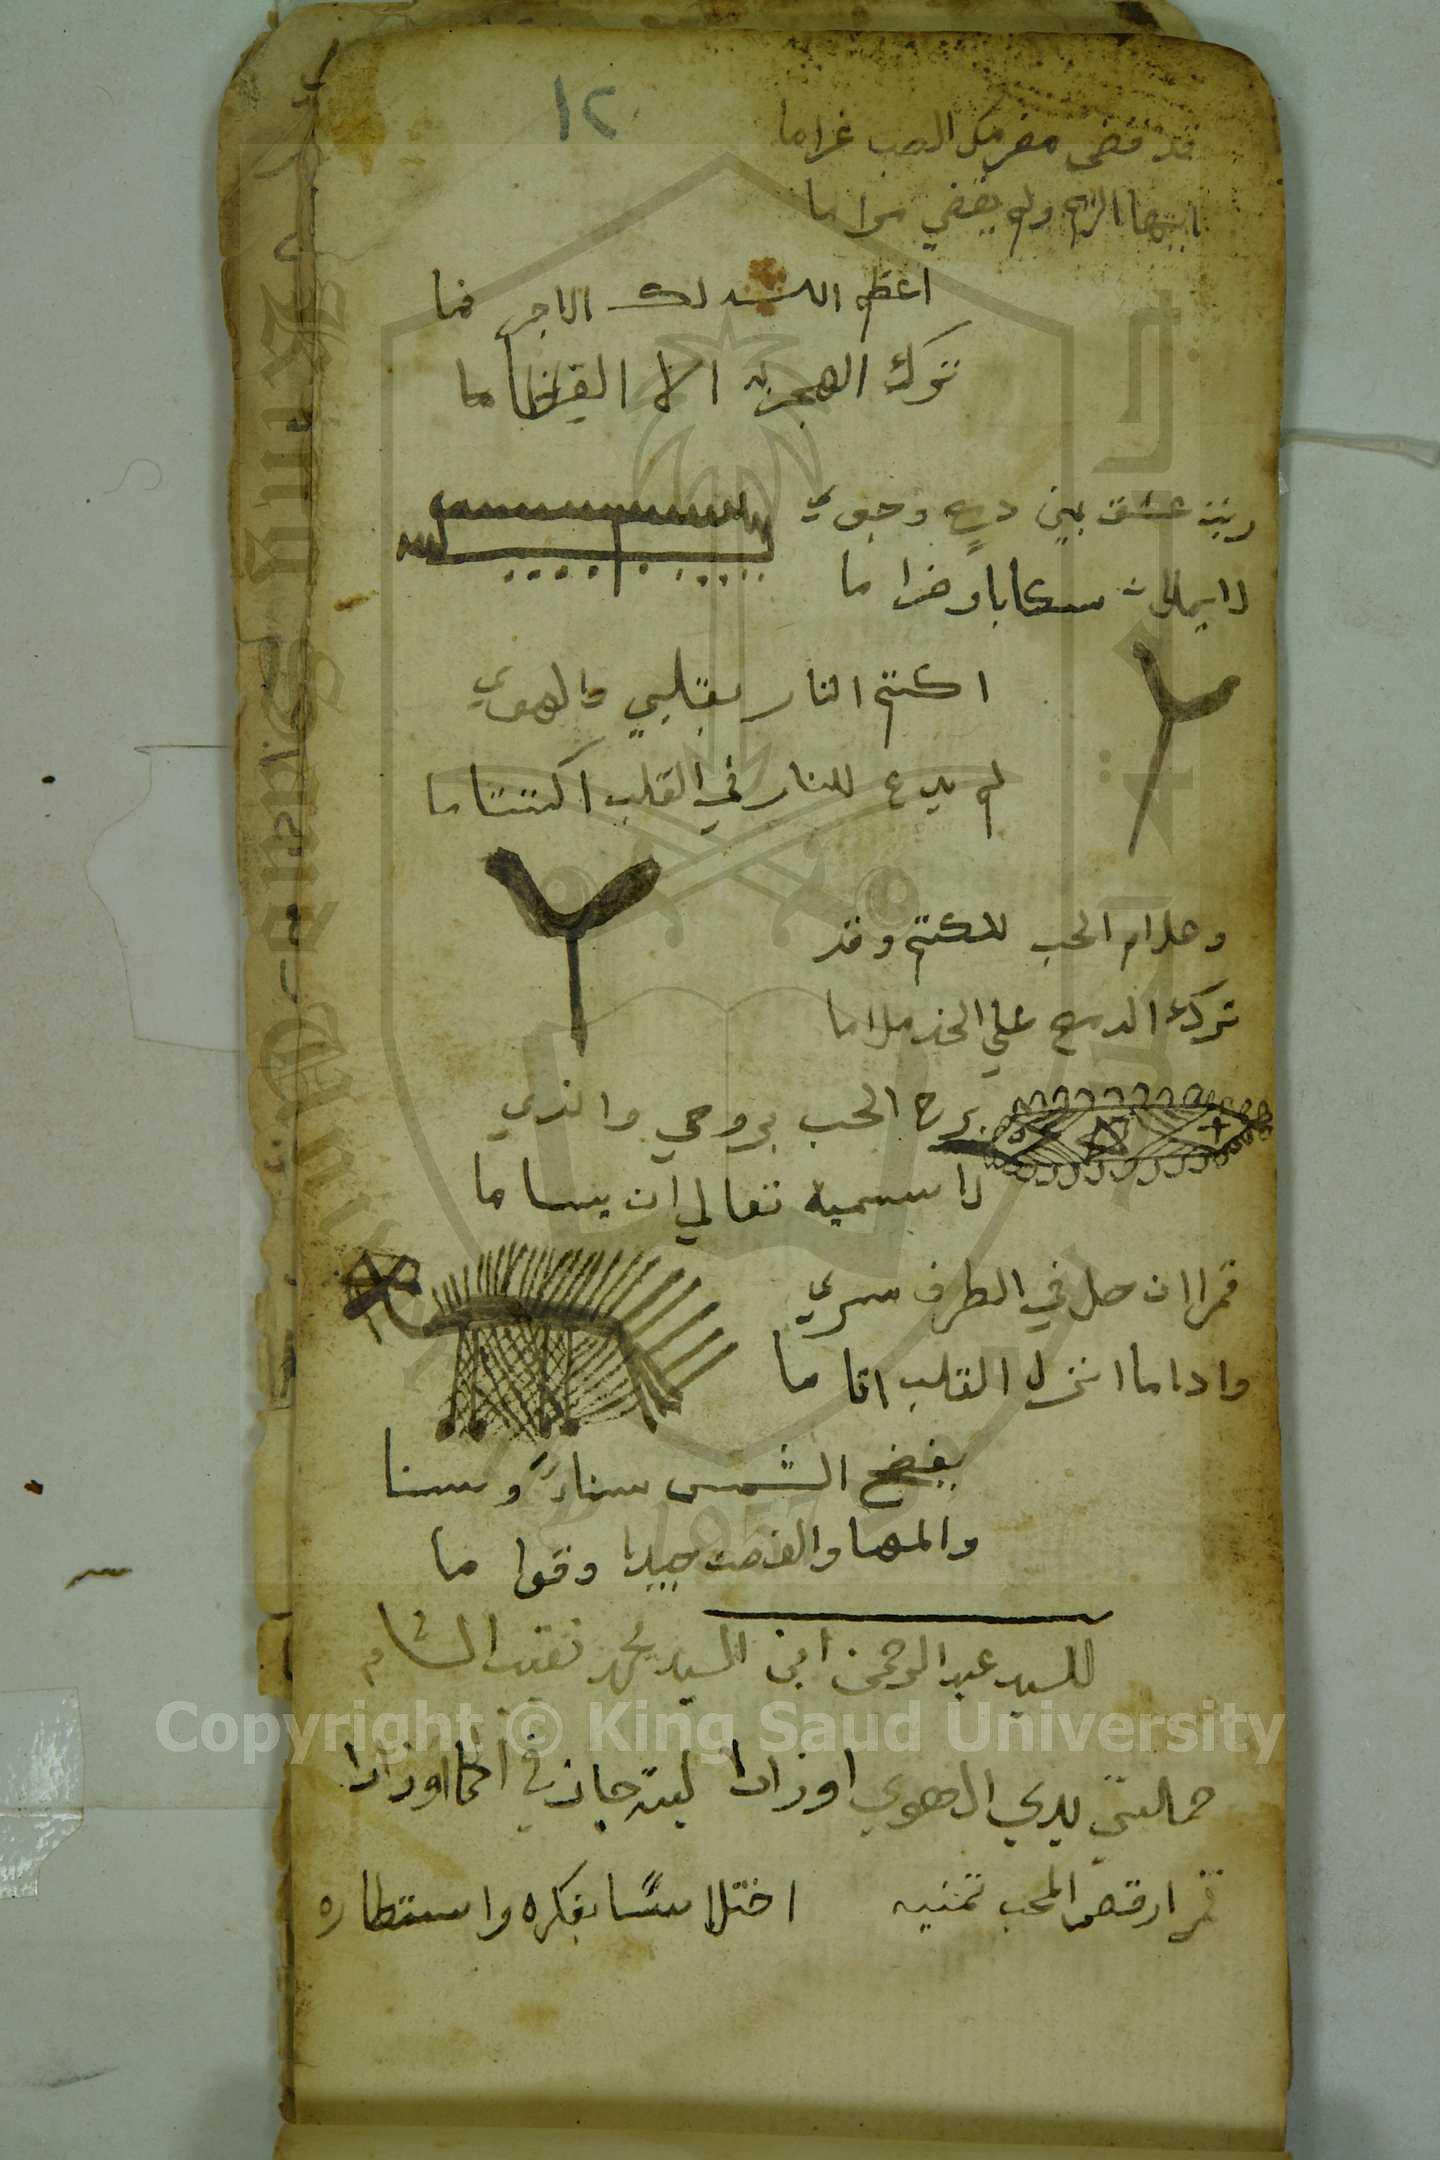 ١٢
قد قضى مغرمك الصب غراما
ايتها الريح ولم يقضي مراما
اعظم الله لك الاجر فما
ترك الهجر به الا العظاما
عشق بين دمع وجوي
لا يملان سكابا وضراما
اكتم النار بقلبي والهوي
لم يدع للنار في القلب اكتتاما
وهل رام الحب للكتم وقد
ترك الدمع علي الخد ملاما
برح الحب بروحي والذي
لا اسميه تعالي ان يساما
قمرا ان حل في الطرف سري
واداما انزل القلب اقاما
يفضح الشمس سناءً وسنا
والمها والغصن جيدا وقواما
للسيد عبد الرحمن ابن السيد محمد نقيب الشام
حملتني يدي الهوي اوزارا ليته جاز في الحما اوزارا
قمرا المحب تمنيه اختلاسًا بفكره واستطاره
Copyright © King Saud University